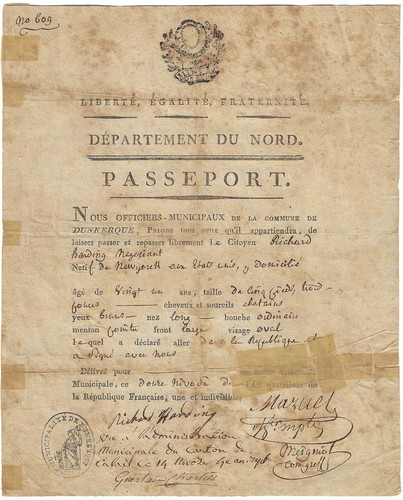 No 609
LIBERTÉ, ÉGALITÉ, FRATERNITÉ.
DÉPARTEMENT DU NORD.
PASSEPORT.
NOUS OFFICIERS-MUNICIPAUX DE LA COMMUNE DE
DUNKERQUE, PRIONS tous ceux qu'il appartiendra, de
laisser passer et repasser librement Le Citoyen Richard
harding Negociant
Natif de Newyorck aux Etats unis, y Domicilié
âgé de Vingt un ans, taille de cinq pieds
pouces cheveux et sourcils chatains
yeux bruns nez long bouche ordinaire
menton pointu front large visage oval
lequel a déclaré aller dans la République et
a signé avec nous
Délivré pour
Municipale, ce Douze Nivose
la République Française, une et indivisible.
Richard Harding
Vu a l'administration
Municipale du Canton de
Calais le 14 Nivose
MUNICIPALITÉ DE DUNKERQUE